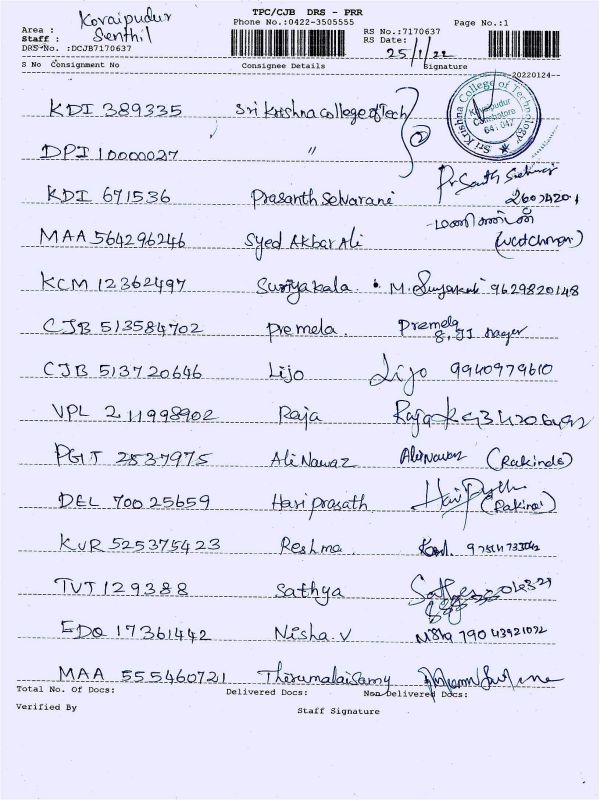 TPC/CJB DRS - PRR
Area : Kovaipudur Phone No.:0422-3505555 RS No.:7170637 Page No.:1
Staff : Senthil RS Date: 25/1/22
DRS No. :DCJB7170637
S No Consignment No Consignee Details Signature
20220124
KDI 389335 Sri Krishna College of Tech
Sri Krishna College of Technology
Kovaipudur
Coimbatore
641 042
DPI 10000027 "
KDI 671536 Prasanth Selvarani
MAA 564296246 Syed Akbar Ali (watchman)
KCM 12362497 Suriyakala M. 9629820148
CJB 513584702 Premela. Premela
8, JJ Nagar
CJB 513720646 Lijo Lijo 9940979610
VPL 211998902 Raja Raja
PGT 2537975 Ali Nawaz Ali Nawaz (Rakinds)
DEL 70025659 Hari prasath
KUR 525375423 Reshma.
TVT 129388 Sathya
EDO 17361442 Nisha. V Nisha 790 43921092
MAA 555460721 Thirumalaisamy
Total No. Of Docs: Delivered Docs: Non Delivered Docs:
Verified By Staff Signature